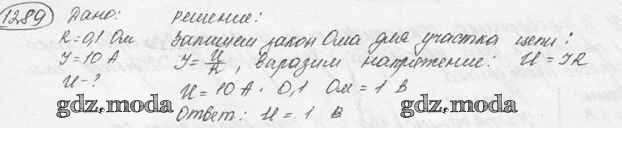 1289 Дано: Решение:
R=0,1 Ом Запишем закон Ома для участка цепи:
I=10 А I=U/R, выразим напряжение: U=IR
U-? U=10 А · 0,1 Ом = 1 В
gdz.moda gdz.moda
Ответ: U=1 В